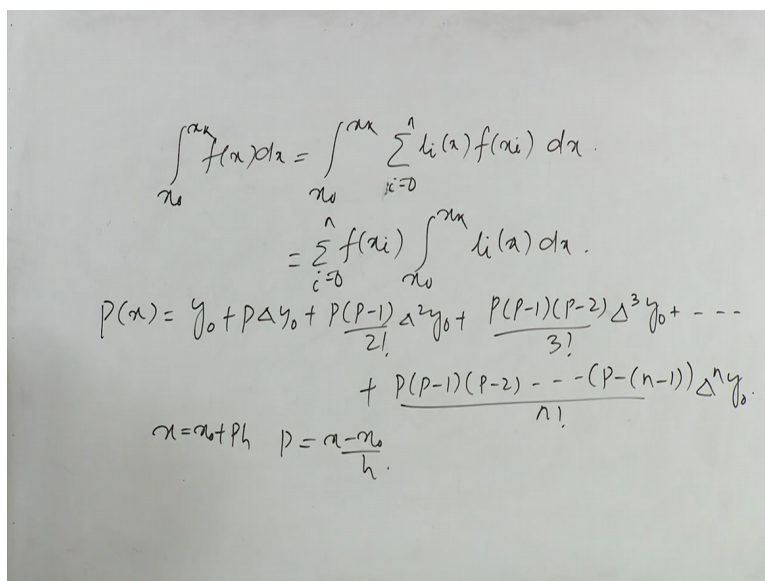 ∫_{x₀}^{xₙ} f(x)dx = ∫_{x₀}^{xₙ} Σ_{i=0}^{n} li(x) f(xi) dx.
= Σ_{i=0}^{n} f(xi) ∫_{x₀}^{xₙ} li(x) dx.
P(x) = y₀ + PΔy₀ + P(P-1)/2! Δ²y₀ + P(P-1)(P-2)/3! Δ³y₀ + ----
+ P(P-1)(P-2) --- -(P-(n-1))/n! Δⁿy₀.
x = x₀+Ph P = x-x₀/h.